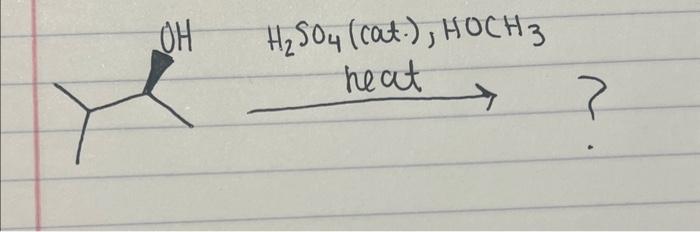 OH
H₂SO₄ (cat.), HOCH₃
heat
?